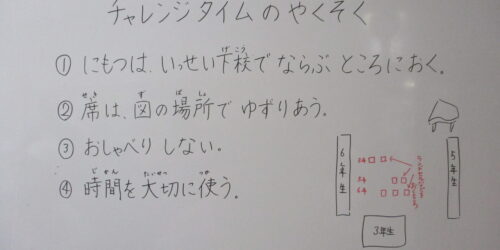 チャレンジタイムのやくそく
① にもつは、いっせい下校でならぶところにおく。
② 席は、図の場所でゆずりあう。
③ おしゃべりしない。
④ 時間を大切に使う。
6年生
5年生
3年生